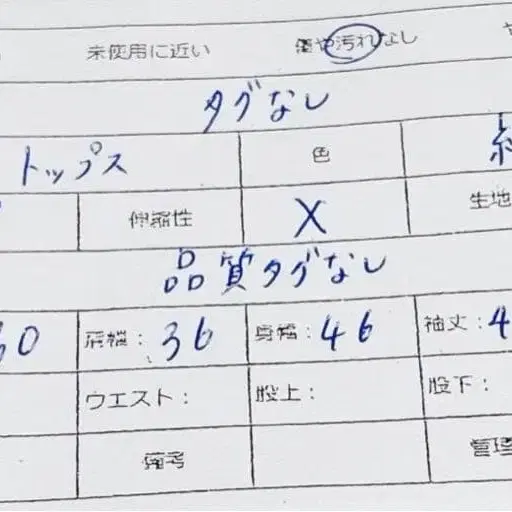 未使用に近い 傷や汚れなし
タグなし
トップス 色
伸縮性 X 生地
品質タグなし
30 肩幅： 36 身幅： 46 袖丈： 4
ウエスト： 股上： 股下：
備考 管理